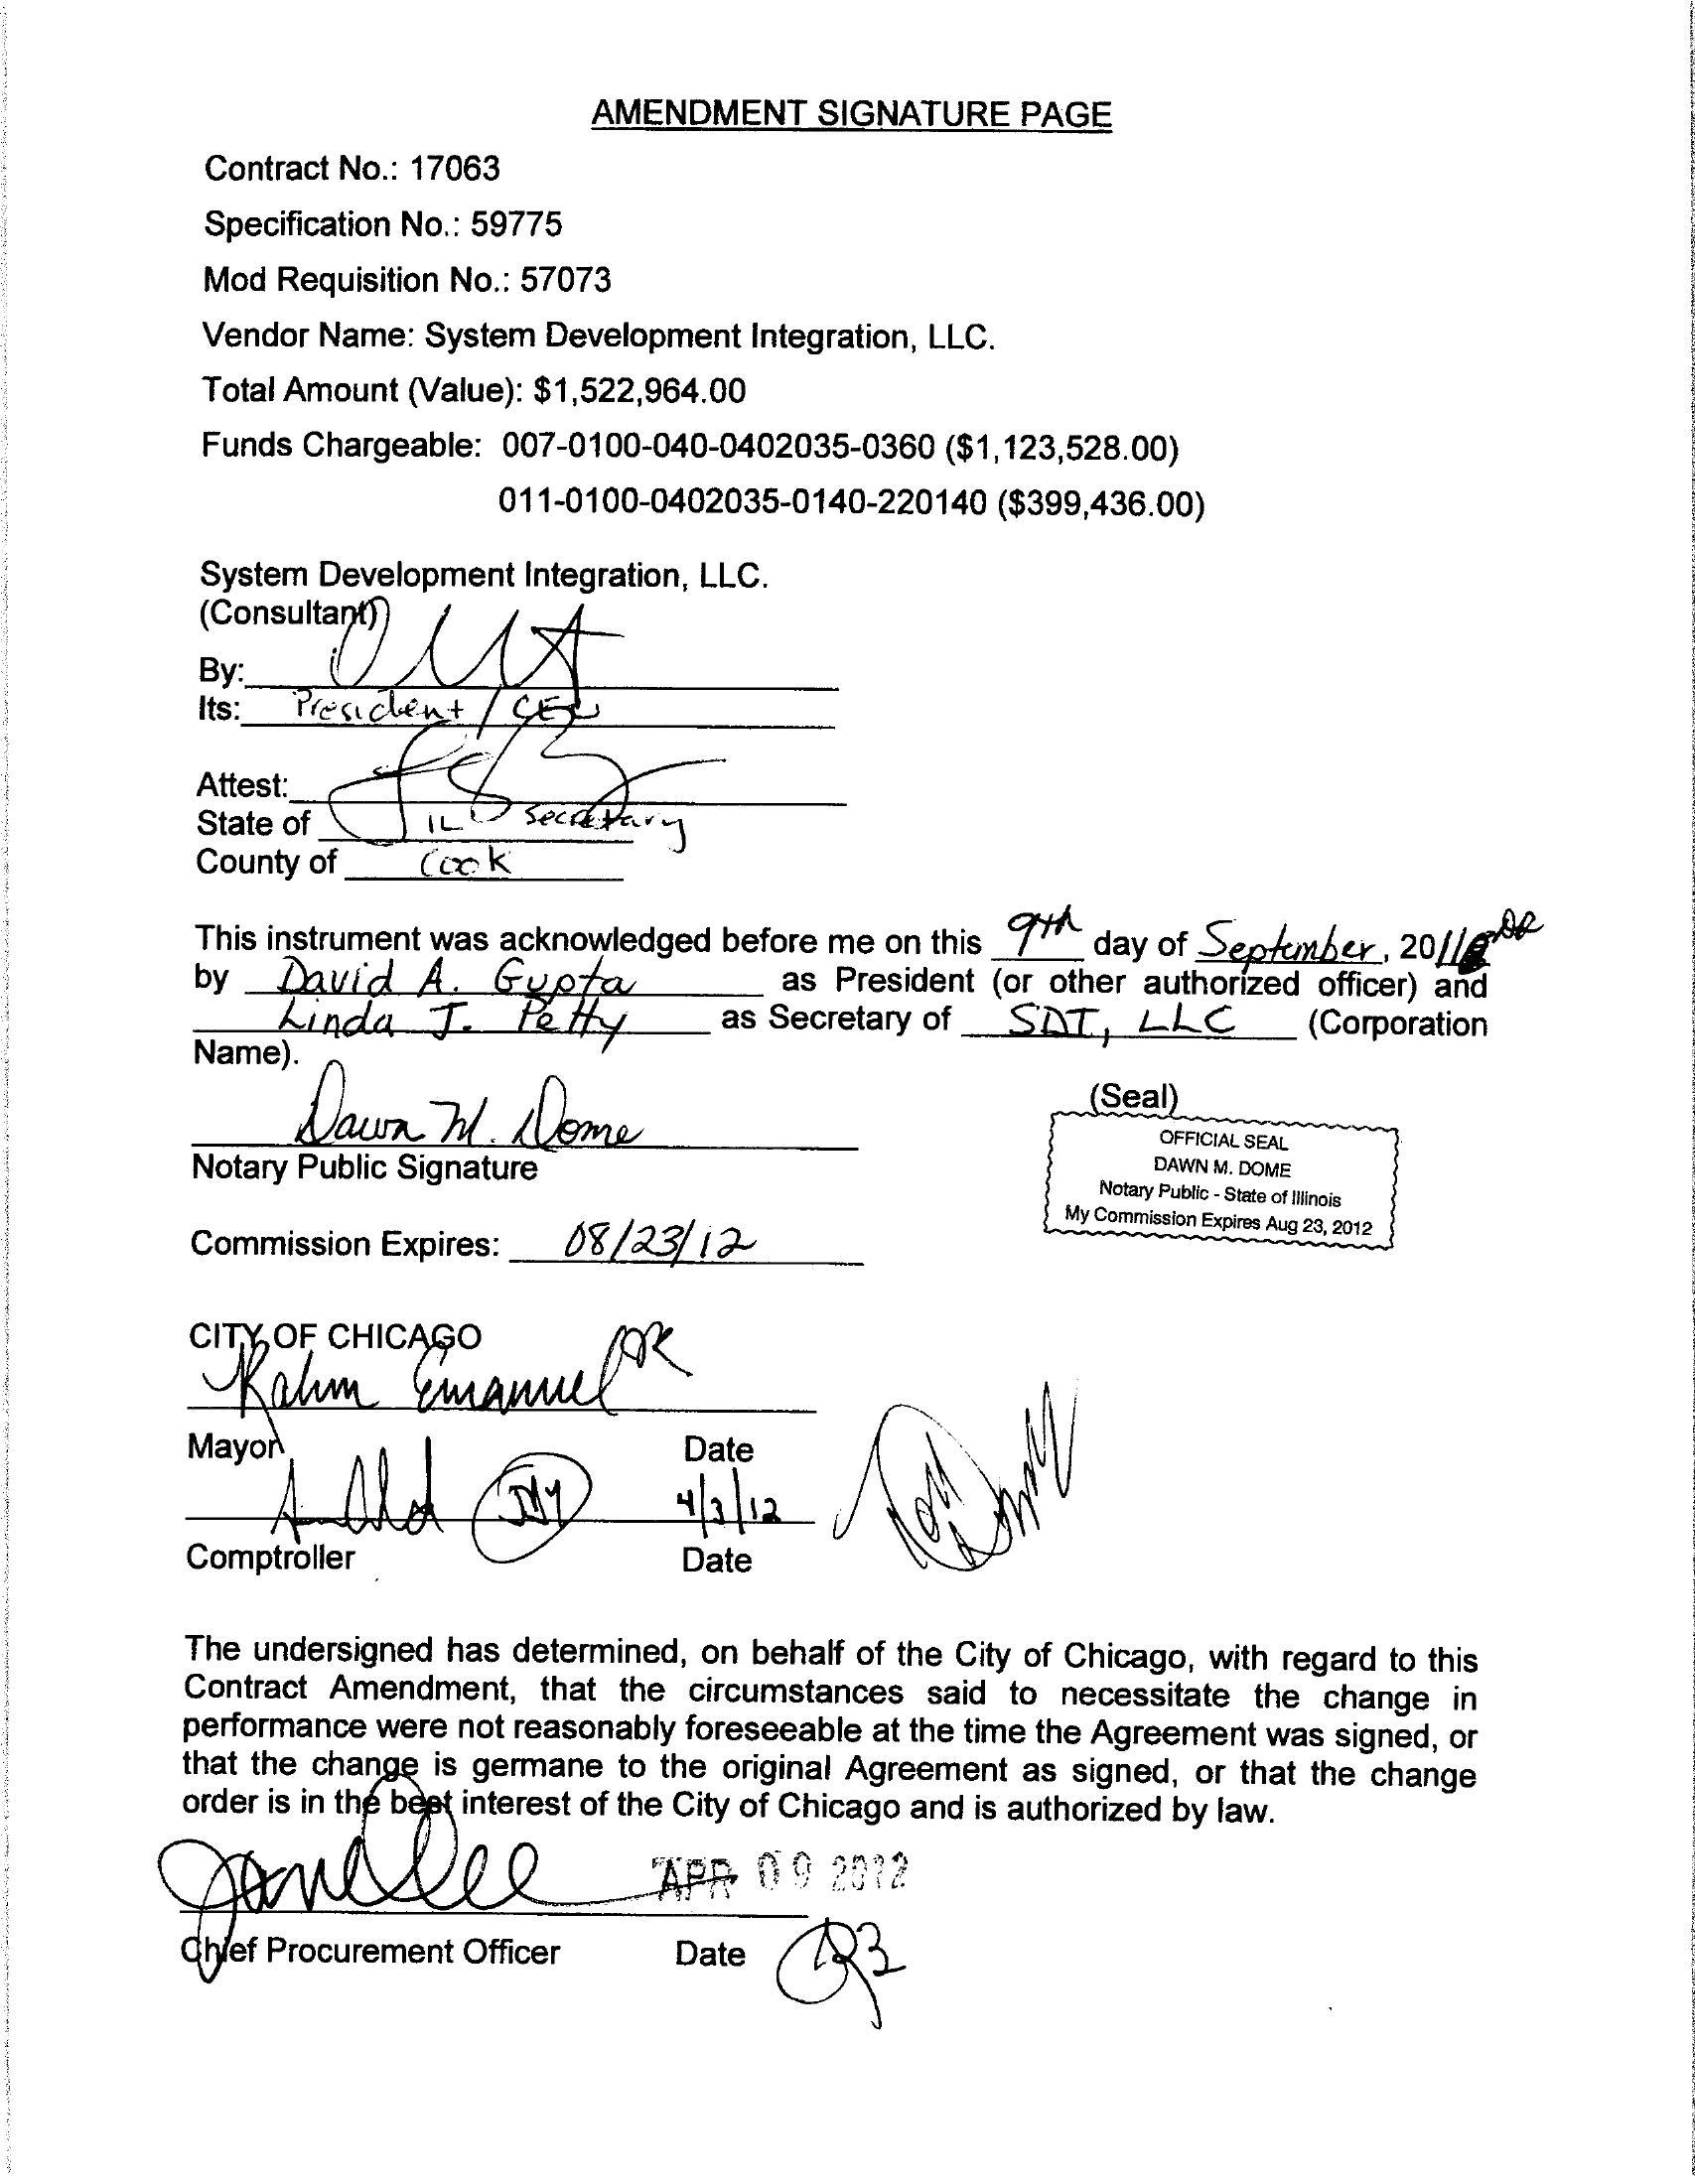 AMENDMENT SIGNATURE PAGE
Contract No.: 17063
Specification No.: 59775
Mod Requisition No.: 57073
Vendor Name: System Development Integration, LLC.
Total Amount (Value): $1,522,964.00
Funds Chargeable: 007-0100-040-0402035-0360 ($1,123,528.00)
011-0100-0402035-0140-220140 ($399,436.00)
System Development Integration, LLC.
(Consultant)
By:
Its: President / CEO
Attest:
State of IL Secretary
County of Cook
This instrument was acknowledged before me on this 9th day of September, 2011
by David A. Gupta as President (or other authorized officer) and
Linda J. Petty as Secretary of SDI, LLC (Corporation
Name).
Dawn M. Dome
(Seal)
OFFICIAL SEAL
DAWN M. DOME
Notary Public - State of Illinois
My Commission Expires Aug 23, 2012
Notary Public Signature
Commission Expires: 08/23/12
CITY OF CHICAGO
Rahm Emanuel
Mayor Date
4/3/12
Comptroller Date
The undersigned has determined, on behalf of the City of Chicago, with regard to this
Contract Amendment, that the circumstances said to necessitate the change in
performance were not reasonably foreseeable at the time the Agreement was signed, or
that the change is germane to the original Agreement as signed, or that the change
order is in the best interest of the City of Chicago and is authorized by law.
APR 09 2012
Chief Procurement Officer Date